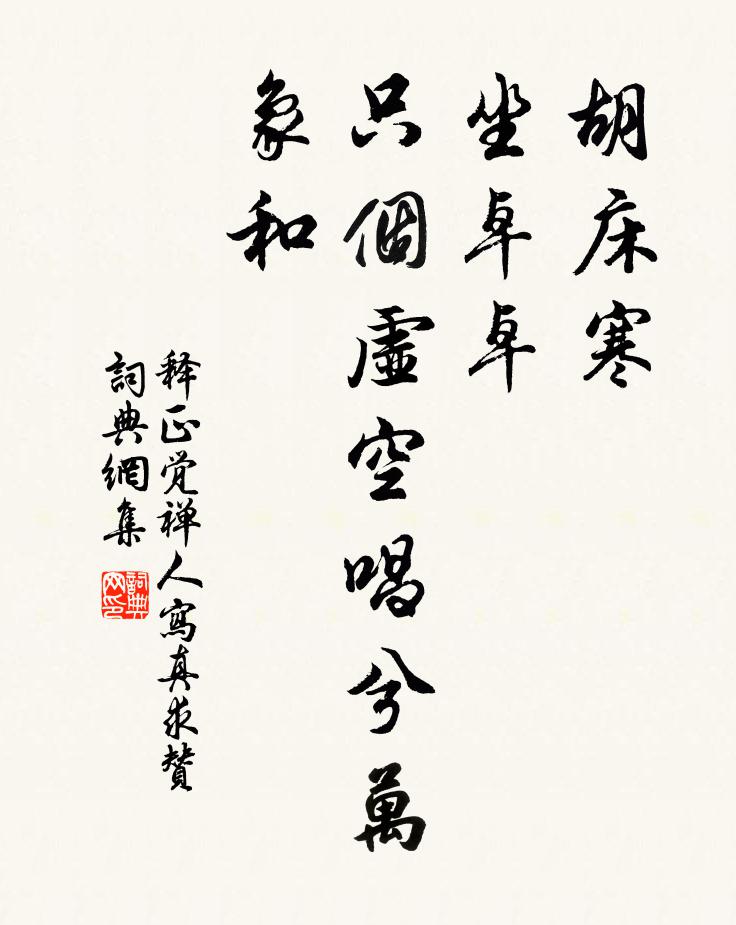 胡床寒
坐卓卓
只個虛空唱兮萬
象和
釋正覺禅人寫真求贊
詞典網集
詞典网印